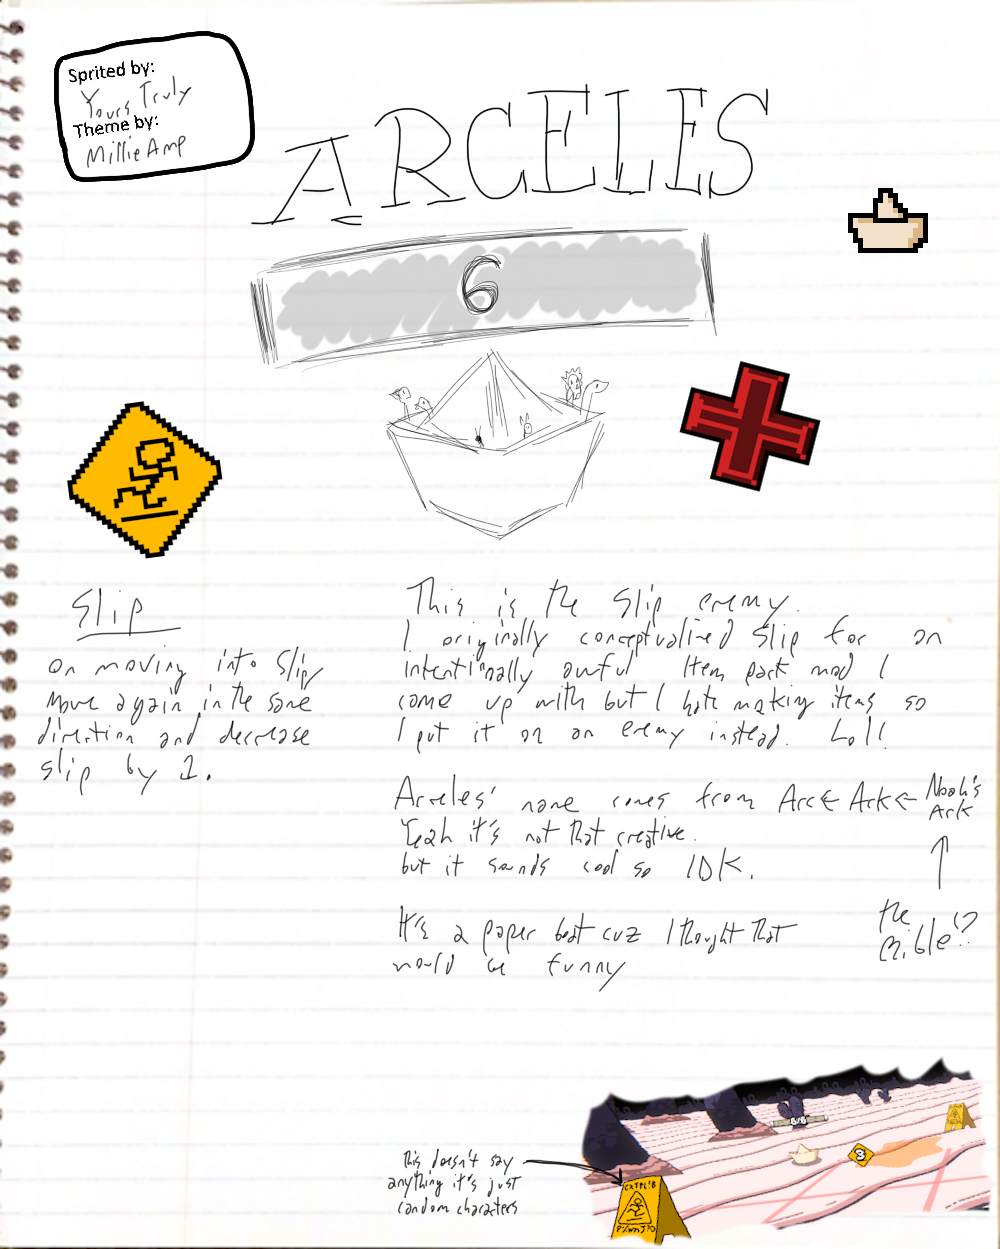 Sprited by:
Yours Truly
Theme by:
Millie Amp
ARCELES
6
Slip
on moving into Slip
move again in the same
direction and decrease
slip by 1.
This is the Slip enemy.
I originally conceptualized Slip for an
intentionally awful Item pack mod I
came up with but I hate making items so
I put it on an enemy instead. Lol!
Arceles' name comes from Arc← Ark← Noah's Ark
Yeah it's not that creative.
but it sounds cool so IDK.
the
Bible!?
It's a paper boat cuz I thought that
would be funny
6/6
3
this doesn't say
anything it's just
random characters